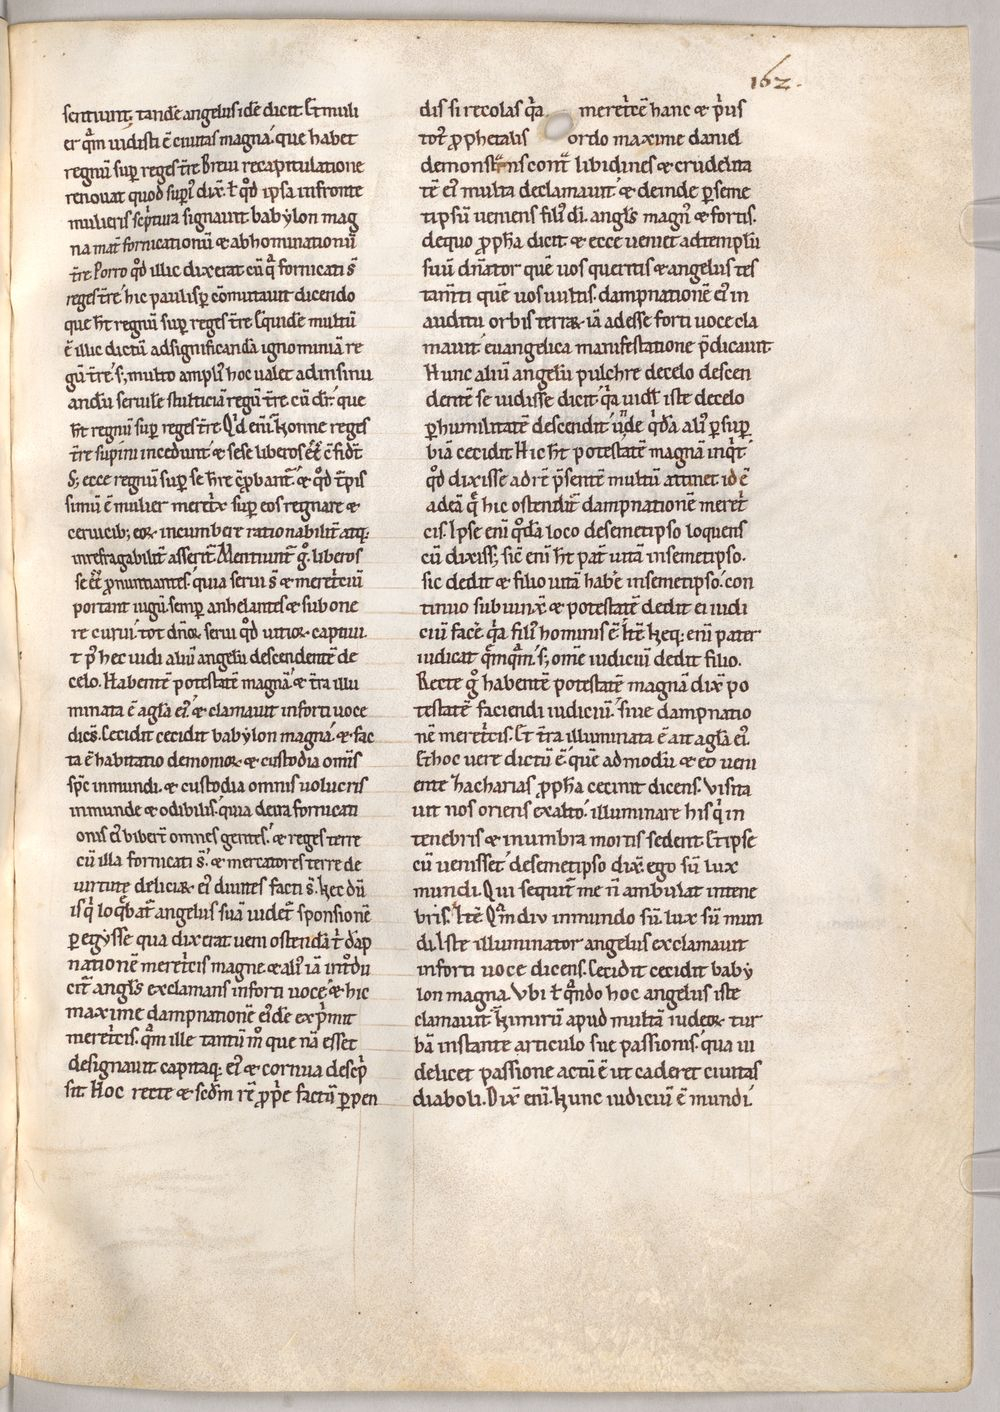 162.
sentiunt; tandē angelus idē dicit. Et muli
er q̄m uidisti ē ciuitas magna. que habet
regnū sup̱ reges tr̄e. Breui recapitulatione
renouat quod supi᷒ dix̄. ł qd̄ ipsa in fronte
mulieris scp̄tura signauit babylon mag
na mat̄ fornicationū & abhominationū
tr̄e. Porro qd̄ illic dixerat cū q̄ fornicati s̄
reges tr̄e. hic paulisp̱ cōmutauit dicendo
que ht̄ regnū sup̱ reges tr̄e. Et quidē multū
ē illic dictū ad significandā ignominiā re
gū tr̄e. s; multo ampli᷒ hoc ualet ad insinu
andū seruile stulticiā regū tr̄e cū dr̄. que
ht̄ regnū sup̱ reges tr̄e. Qd̄ enī. Nonne reges
tr̄e supini incedunt & sese liberos ēē c̄fidt̄
S; ecce regnū sup̱ se hr̄e cp̄robant̄. & qd̄ tp̄is
simū ē mulier meret̄x sup̱ eos regnare &
ceruicib; eoꝝ incumbere rationabilit̄ atq;
inrefragabilit̄ asserit̄. Mentiunt̄ g̊ liberos
se ēē p̄nuntiantes. quia serui s̄ & meret̄ciū
portant iugū. semp̱ anhelantes & sub one
re curui. tot dn̄oꝝ serui qd̄ uitioꝝ captiui.
t p᷒ hec uidi aliū angelū descendentē de
celo. Habentē potestatē magnā. & tr̄a illu
minata ē a gl̄a ei᷒. & clamauit in forti uoce
dicēs. Cecidit cecidit babylon magna. & fac
ta ē habitatio demonioꝝ & custodia omīs
spc̄ inmundi. & custodia omnis uolucris
inmunde & odibilis. quia de ira fornicati
onis ei᷒ biber̄t omnes gentes. & reges terre
cū illa fornicati s̄. & mercatores terre de
uirtute deliciaꝝ ei᷒ diuites facti s̄. Hec dū
is q̇ loq̄bat̄ angelus suā uidet̄ sponsionē
p̱egysse qua dixerat ueni ostendā t̄ dāp
nationē meret̄cis magne. & ali᷒ iā int̄du
cit̄ angl̄s exclamans in forti uoce. & hic
maxime dampnationē eidē exp̄mit
meret̄cis. q̄m ille tantū m̊ que nā esset
designauit capitaq; ei᷒ & cornua descp̄
sit. Hoc recte & scd̄m rē p̄pē factū p̱pen
dis si recolas q̇a meret̄cē hanc & p̄us
tot᷒ p̄phetalis ordo maxime daniel
demonstr̄ns cont̄ libidines & crudelita
tē ei᷒ multa declamauit. & deinde p̱ seme
tipsū ueniens fili᷒ dī. angl̄s magn᷒ & fortis.
de quo p̄ph̄a dicit & ecce ueniet ad templū
suū dn̄ator quē uos queritis & angelus tes
tam̄ti quē uos uultis. dampnationē ei᷒ in
auditu orbis terraꝝ iā adesse forti uoce cla
mauit. euangelica manifestatione p̄dicauit
Hunc aliū angelū pulchre de celo descen
dentē se uidisse dicit. q̇a uidl̄ iste de celo
p̱ humilitatē descendit. unde q̇dā ali᷒ p̱ sup̱
biā cecidit. Hic ht̄ potestatē magnā inq̇t.
qd̄ dixisse ad rē p̄sentē multū attinet. id ē
ad eā q̄ hic ostendit̄ dampnationē meret̄
cis. Ipse enī q̊dā loco de semetipso loquens
cū dixiss; sic̄ enī ht̄ pat̄ uitā in semetipso.
sic dedit & filio uitā habe in semetipso. con
tinuo subiunx̄ & potestatē dedit ei iudi
ciū facē. q̇a fili᷒ hominis ē. Itē. Neq; enī pater
iudicat q̄mq̄m. s; om̄e iudiciū dedit filio.
Recte g̊ habentē potestatē magnā dix̄ po
testatē faciendi iudiciū. siue dampnatio
nē meret̄cis. Et tr̄a illuminata ē ait a gl̄a ei᷒.
Et hoc uere dictū ē. quē ad modū & eo ueni
ente zacharias p̄ph̄a cecinit dicens. Visita
uit nos oriens ex alto. illuminare his q̇ in
tenebris & in umbra mortis sedent. Et ipse
cū uenisset. de semetipso dix̄. ego sū lux
mundi. Qui sequit̄ me n̄ ambulat in tene
bris. Itē. Q̄m diu in mundo sū. lux sū mun
di. Iste illuminator angelus exclamauit
in forti uoce dicens. Cecidit cecidit baby
lon magna. Vbi ł q̄ndo hoc angelus iste
clamauit. Nimirū apud multā iudeoꝝ tur
bā instante articulo sue passionis. qua ui
delicet passione actū ē ut caderet ciuitas
diaboli. Dix̄ enī. Nunc iudiciū ē mundi.